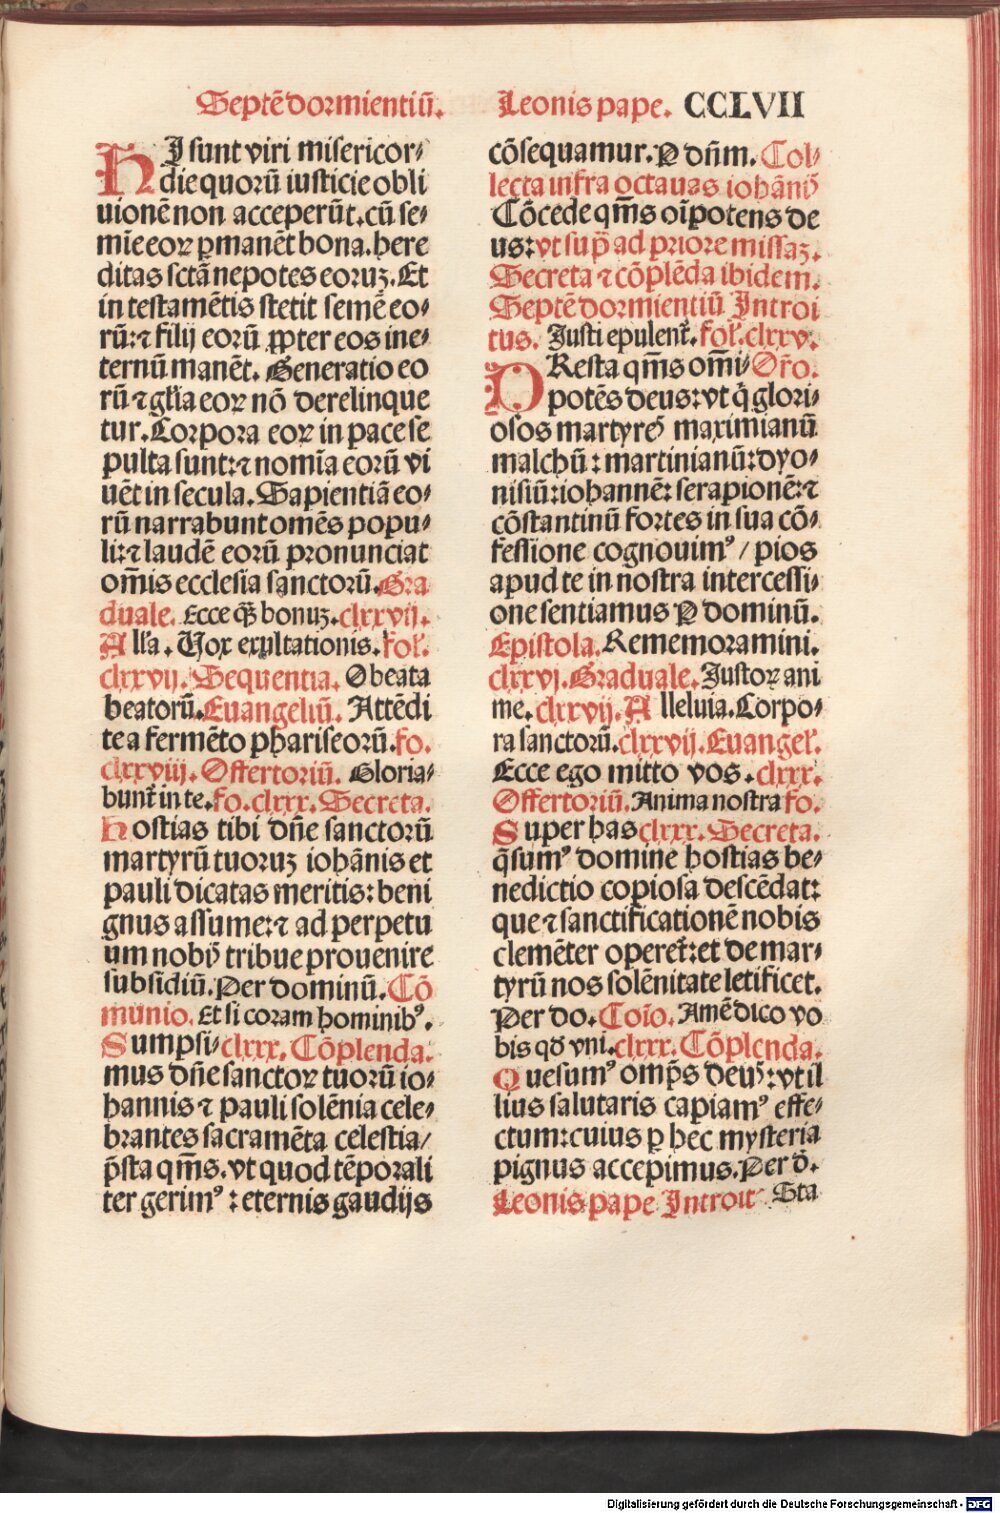 Septē dormientiū. Leonis pape. CCLVII
HI sunt viri misericor⸗
die quorū iusticie obli
uionē non acceperūt. cū se⸗
mīe eoꝝ ꝑmanēt bona. here
ditas sctā nepotes eoruꝫ. Et
in testamētis stetit semē eo⸗
rū: ⁊ filij eorū ꝓpter eos ine⸗
ternū manēt. Generatio eo
rū ⁊ gľia eoꝝ nō derelinque
tur. Corpora eoꝝ in pace se
pulta sunt: ⁊ nomīa eorū vi
uēt in secula. Sapientiā eo⸗
rū narrabunt omēs popu⸗
li: ⁊ laudē eorū pronunciat
om̄is ecclesia sanctorū. Gra
duale. Ecce q̄ꝫ bonuꝫ. clxxvij.
Alľa. Vox exultationis. fol.
clxxvij. Sequentia. O beata
beatorū. Euangeliū. Attēdi
te a fermēto phariseorū. fo.
clxxviij. Offertoriū. Gloria⸗
bunt̄ in te. fo. clxxx. Secreta.
Hostias tibi dn̄e sanctorū
martyrū tuoruꝫ iohānis et
pauli dicatas meritis: beni
gnus assume: ⁊ ad perpetu
um nobꝭ tribue prouenire
subsidiū. Per dominū. Cō
munio. Et si coram hominibꝰ.
Sumpsi⸗ clxxx. Cōplenda.
mus dn̄e sanctoꝝ tuorū io⸗
hannis ⁊ pauli solēnia cele⸗
brantes sacramēta celestia/
p̄sta qm̄s. vt quod tēporali
ter gerimꝰ: eternis gaudijs
cōsequamur. P dn̄m. Col⸗
lecta infra octauas iohānꝭ
Cōcede qm̄s oīpotens de
us: vt sup̄ ad priore missaꝫ.
Secreta ⁊ cōplēda ibidem.
Septē dormientiū Introi
tus. Justi epulent̄. fol. clxxv.
PResta qm̄s om̄i⸗ Or̄o.
potēs deus: vt q̇ glori⸗
osos martyreꝭ maximianū
malchū: martinianū: dyo⸗
nisiū: iohannē: serapionē: ⁊
cōstantinū fortes in sua cō⸗
fessione cognouimꝰ/ pios
apud te in nostra intercessi⸗
one sentiamus P dominū.
Epistola. Rememoramini.
clxxvj. Graduale. Justoꝝ ani
me. clxxvij. Alleluia. Corpo⸗
ra sanctorū. clxxvij. Euangeľ.
Ecce ego mitto vos. clxxx.
Offertoriū. Anima nostra fo.
Super has clxxx. Secreta.
q̄sumꝰ domine hostias be⸗
nedictio copiosa descēdat:
que ⁊ sanctificationē nobis
clemēter operet̄: et de mar⸗
tyrū nos solēnitate letificet.
Per do. Coīo. Amē dico vo
bis qđ vni. clxxx. Cōplenda.
Quesumꝰ omp̄s deꝰ: vt il
lius salutaris capiamꝰ effe⸗
ctum: cuius ꝑ hec mysteria
pignus accepimus. Per d̄.
Leonis pape Introit Sta
Digitalisierung gefördert durch die Deutsche Forschungsgemeinschaft - DFG